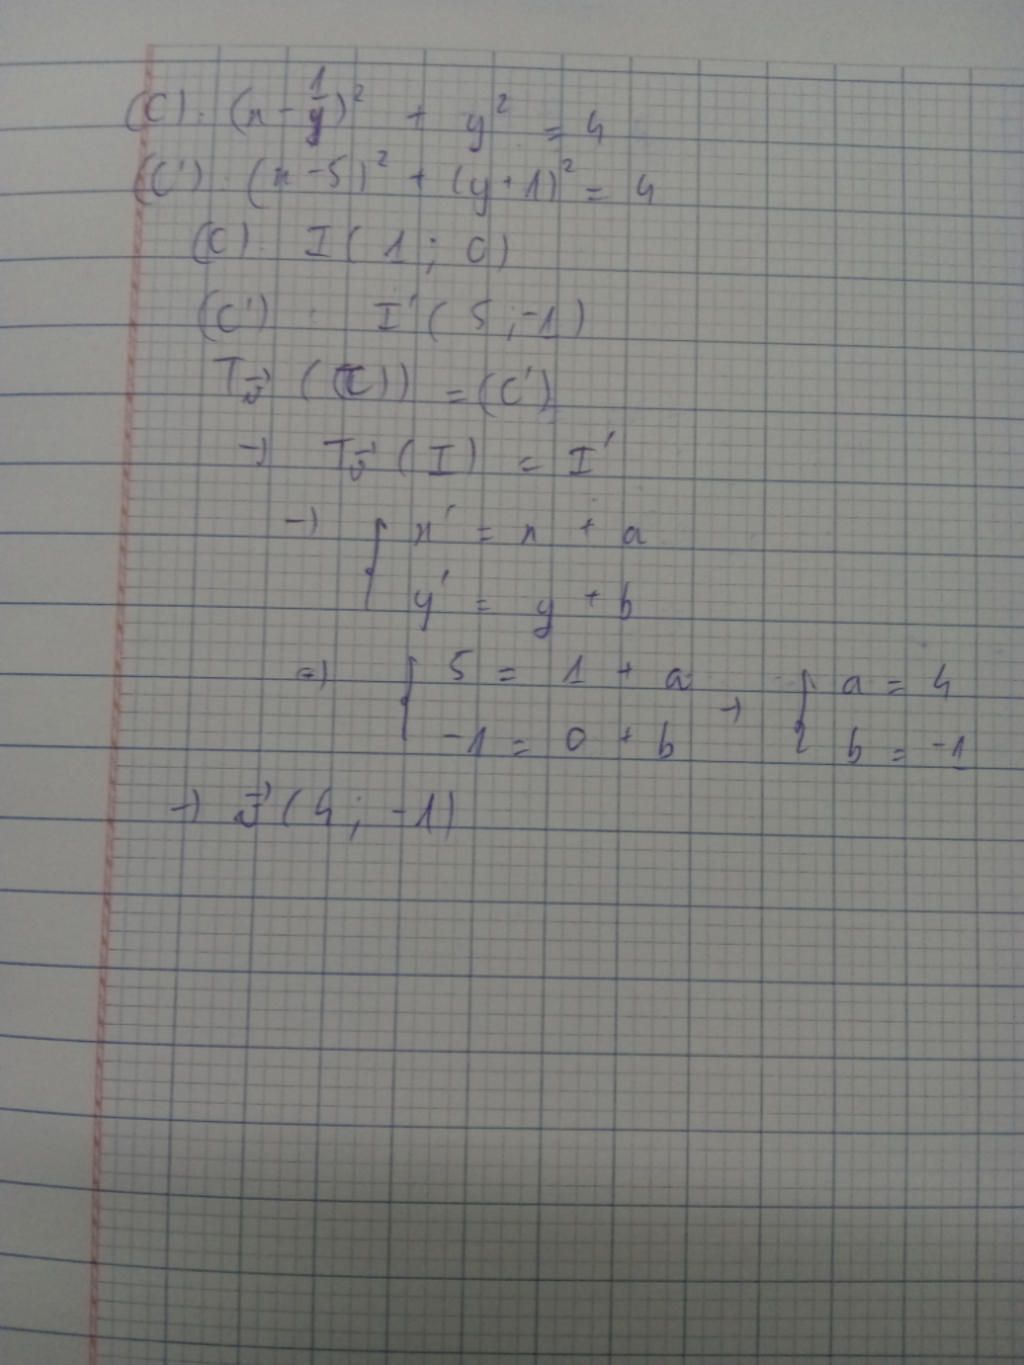 (C) : (x - 1)² + y² = 4
(C') : (x - 5)² + (y + 1)² = 4
(C) : I ( 1 ; 0)
(C') : I' ( 5 ; -1)
T_v⃗ ((C)) = (C')
→ T_v⃗ (I) = I'
→ { x' = x + a
y' = y + b
⇒ { 5 = 1 + a → { a = 4
-1 = 0 + b b = -1
→ v⃗ (4 ; -1)